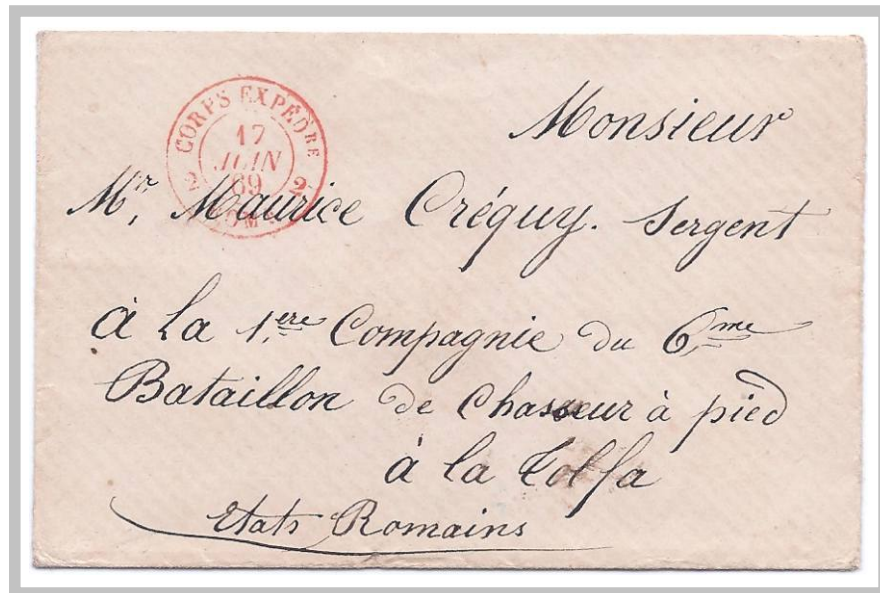 CORPS EXPÉD.RE
2 2
17
JUIN
69
Monsieur
Mr, Maurice Créquy. Sergent
à La 1.ere Compagnie du 6me
Bataillon de Chasseur à pied
à la Tolfa
Etats Romains